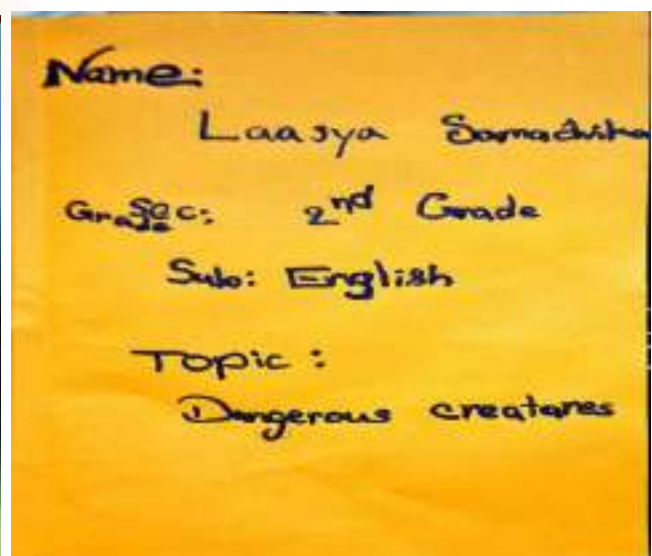 Name:
Laasya Samadvika
Grade Sec: 2nd Grade
Sub: English
Topic:
Dangerous creatures